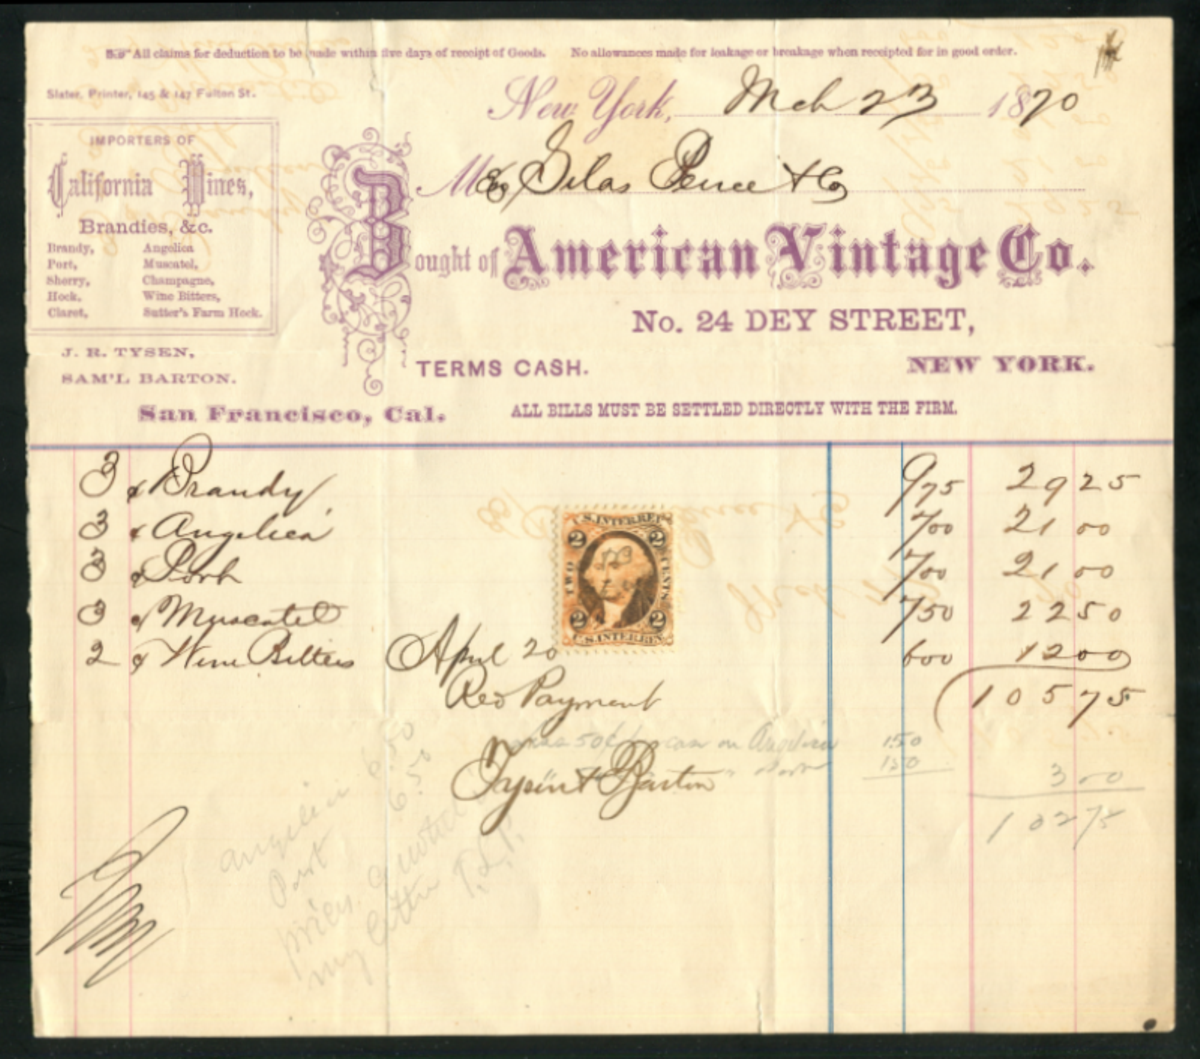 All claims for deduction to be made within five days of receipt of Goods. No allowances made for leakage or breakage when receipted for in good order.
Slater, Printer, 145 & 147 Fulton St.
New York, Mch 23 1870
IMPORTERS OF
California Wines,
Brandies, &c.
Brandy, Angelica
Port, Muscatel,
Sherry, Champagne,
Hock, Wine Bitters,
Claret, Sutter's Farm Hock.
J. R. TYSEN,
SAM'L BARTON.
San Francisco, Cal.
M Silas Peirce & Co
Bought of American Vintage Co.
No. 24 DEY STREET,
TERMS CASH. NEW YORK.
ALL BILLS MUST BE SETTLED DIRECTLY WITH THE FIRM.
3 Brandy 975 2925
3 Angelica 700 2100
3 Port 700 2100
3 Muscatel 750 2250
2 Wine Bitters 600 1200
10575
U.S. INTER. REV.
2 2
TWO CENTS
2 2
U.S. INTER. REV.
April 20
Rec Payment
Tysen & Barton
50¢ case on Angelica 150
" Port 150 300
10275
Angelica 6.50
Port 6.50
prices quoted
my letter